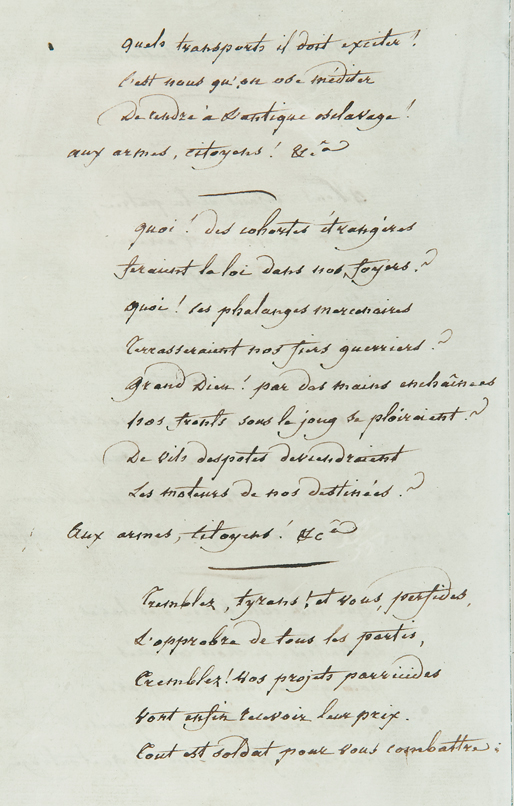 quels transports il doit exciter!
c'est nous qu'on ose méditer
De rendre à L'antique esclavage!
aux armes, citoyens! &c.a
quoi! des cohortes étrangères
feraient la loi dans nos foyers?
quoi! ces phalanges mercenaires
Terrasseraient nos fiers guerriers?
Grand Dieu! par des mains enchaînées
nos fronts sous le joug se ploiraient?
De vils despotes deviendraient
Les moteurs de nos destinées?
Aux armes, citoyens! &c.a
Tremblez, tyrans! et vous, perfides,
L'opprobre de tous les partis,
Tremblez! vos projets parricides
vont enfin recevoir leur prix.
Tout est soldat pour vous combattre: